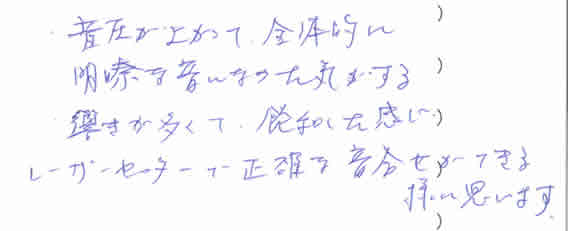 ・音圧が上がって、全体的に )
明瞭な音になった気がする )
・響きが多くて、飽和した感じ )
レーザーセッターで正確な音合せができる )
様に思います。 )